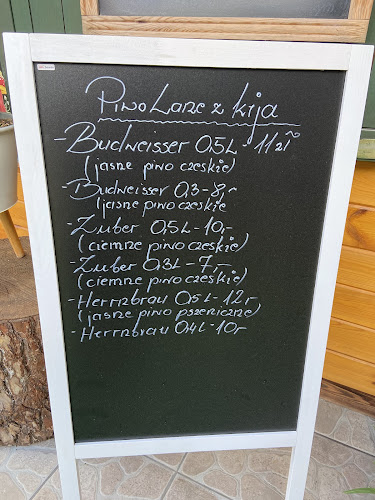 Piwo Lane z kija
- Budweisser 0,5L - 11 zł
(jasne piwo czeskie)
- Budweisser 0,3 - 8,-
(jasne piwo czeskie
- Zuber 0,5L - 10,-
(ciemne piwo czeskie)
- Zuber 0,3L - 7,-
(ciemne piwo czeskie)
- Herrnbrau 0,5L - 12,-
(jasne piwo pszeniczne)
- Herrnbrau 0,4L - 10,-